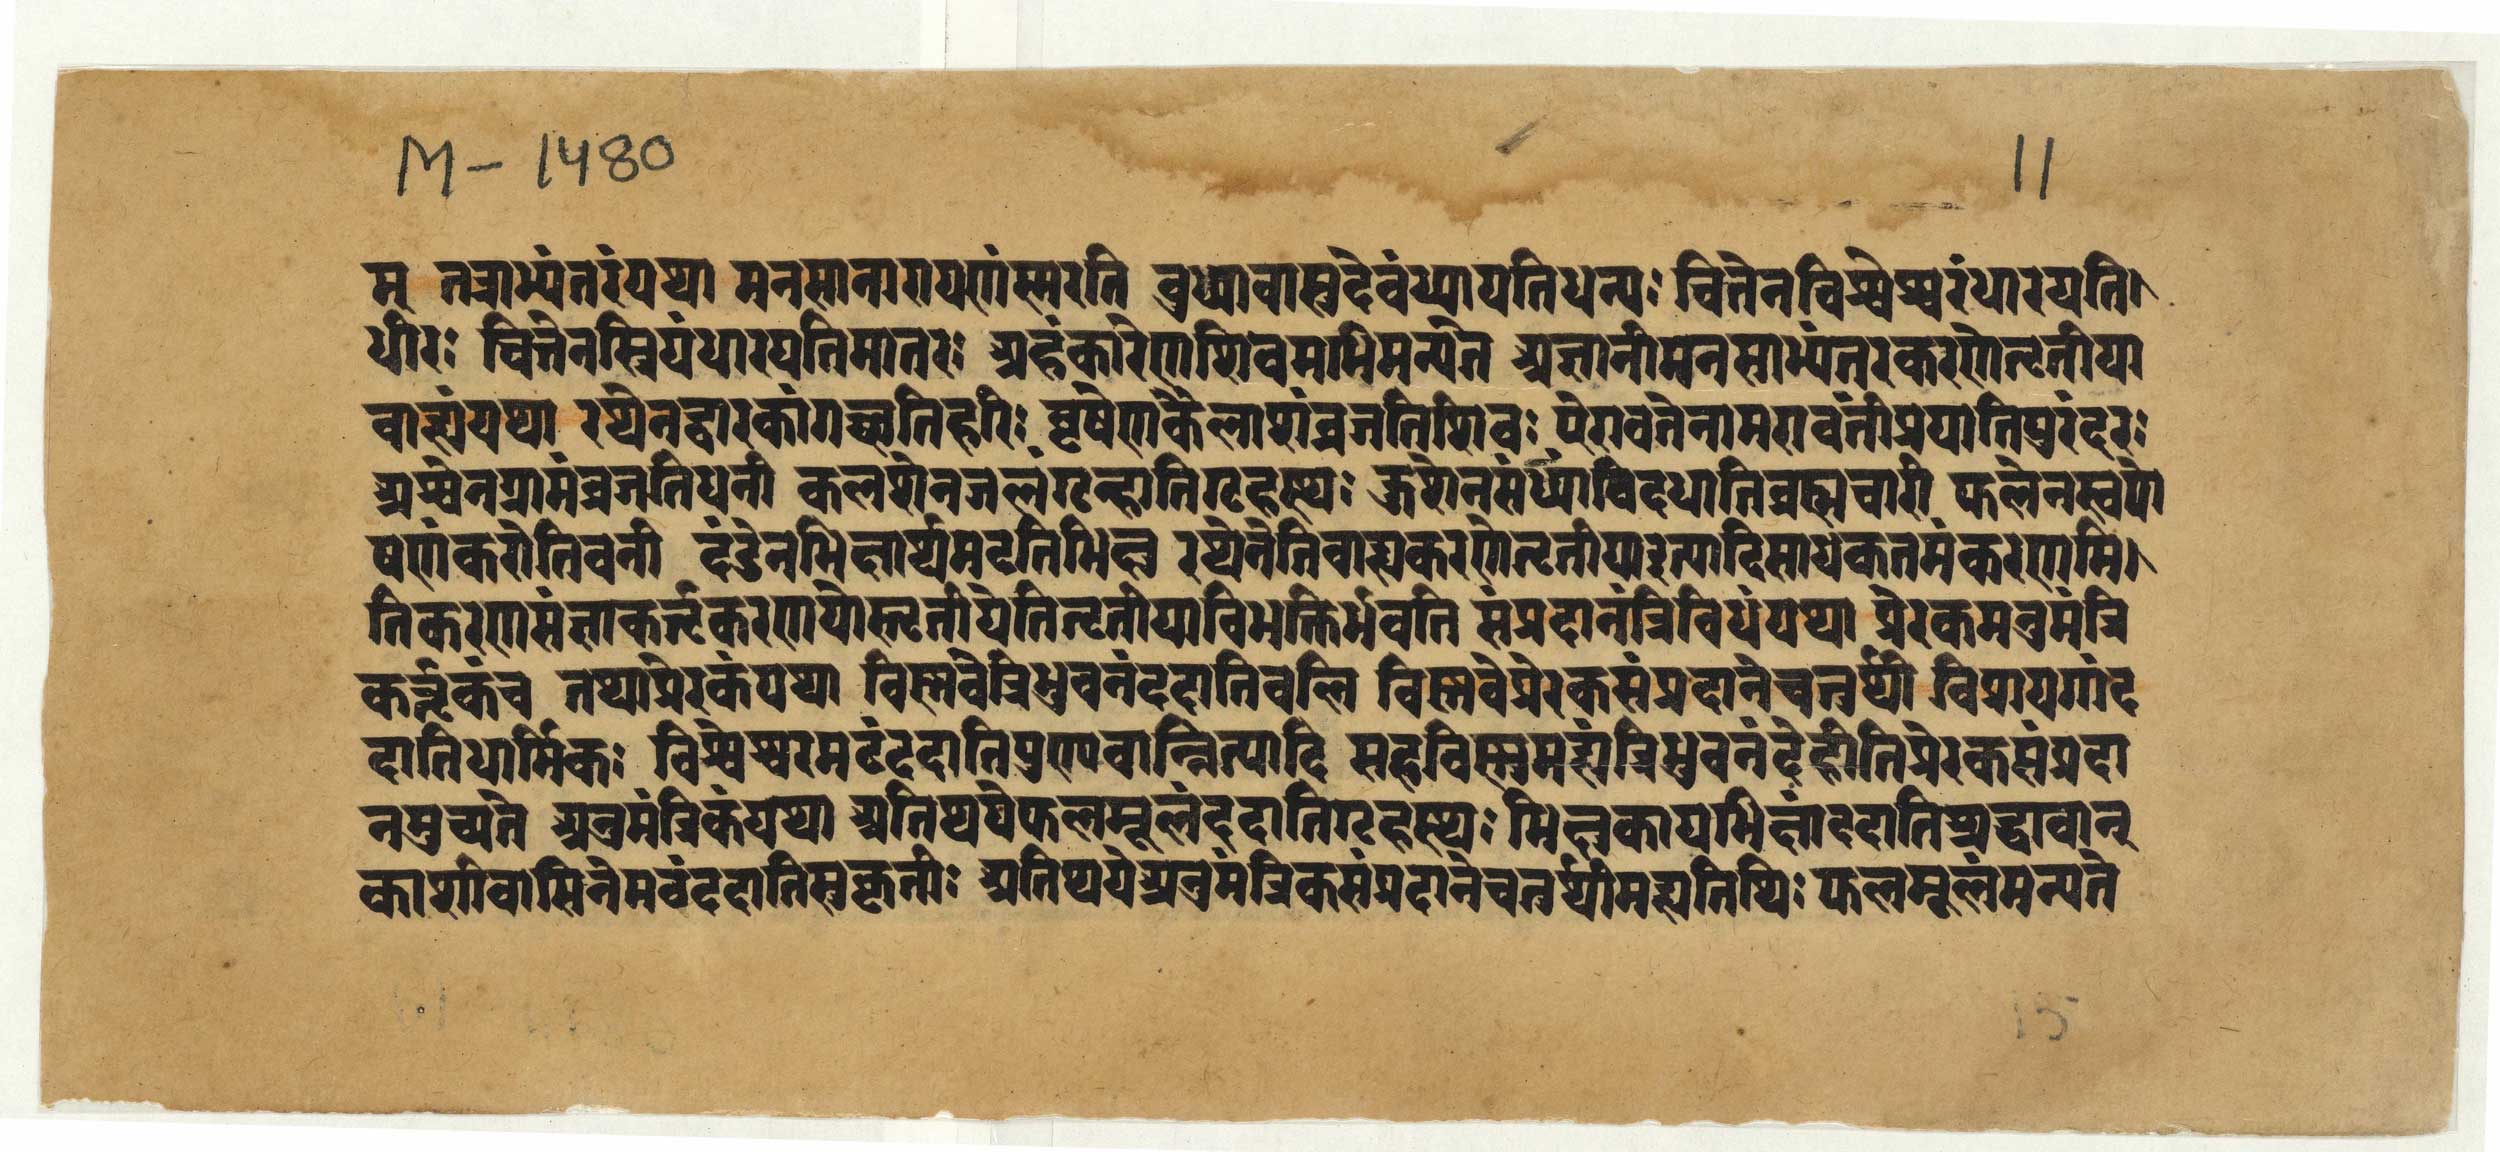 M-1480
11
म् तत्राभ्यंतरंयथा मनसानारायणंस्मरति बुध्यावासुदेवंध्यायतिधन्यः चित्तेनविश्वेश्वरंधारयति
धीरः चित्तेनस्त्रियंधारयतिमातरः अहंकारेणशिवमभिमन्यते अज्ञानीमनसाभ्यंतरकरणेतृतीया
वाह्यंयथा रथेनद्वारकांगच्छतिहरिः वृषेणकैलाशंव्रजतिशिवः ऐरावतेनामरावतींप्रयातिपुरंदरः
अश्वेनग्रामंव्रजतिधनी कलशेनजलंगृन्हातिगृहस्थः कुशेनसंध्यांविदधातिब्रह्मचारी फलेनस्वपो
षणंकरोतिवनी दंडेनभिक्षार्थमटतिभिक्षु रथेनेतिवाह्यकरणेतृतीयाइत्यादिसाधकतमंकरणमि
तिकरणसंज्ञाकर्तृकरणयोस्तृतीयेतितृतीयाविभक्तिर्भवति संप्रदानंत्रिविधंयथा प्रेरकमनुमंत्रि
कर्तृकंच तथाप्रेरकंयथा विस्नवेत्रिभुवनंददातिवलि विस्नवेप्रेरकसंप्रदानेचतुर्थी विप्रायगांद
दातिधार्मिकः विश्वेश्वरमठंददातिपुण्यवान्नित्यादि सहविस्नुमह्यंत्रिभुवनंदेहीतिप्रेरकसंप्रदा
नमुच्यते अनुमंत्रिकंयथा अतिथयेफलमूलंददातिगृहस्थः भिक्षुकायभिक्षांददातिश्रद्धावान्
काशीवासिनेमवंददातिसुकृतीः अतिथयेअनुमंत्रिकसंप्रदानेचतुर्थीमह्यतिथिः फलमूलंमन्यते
15